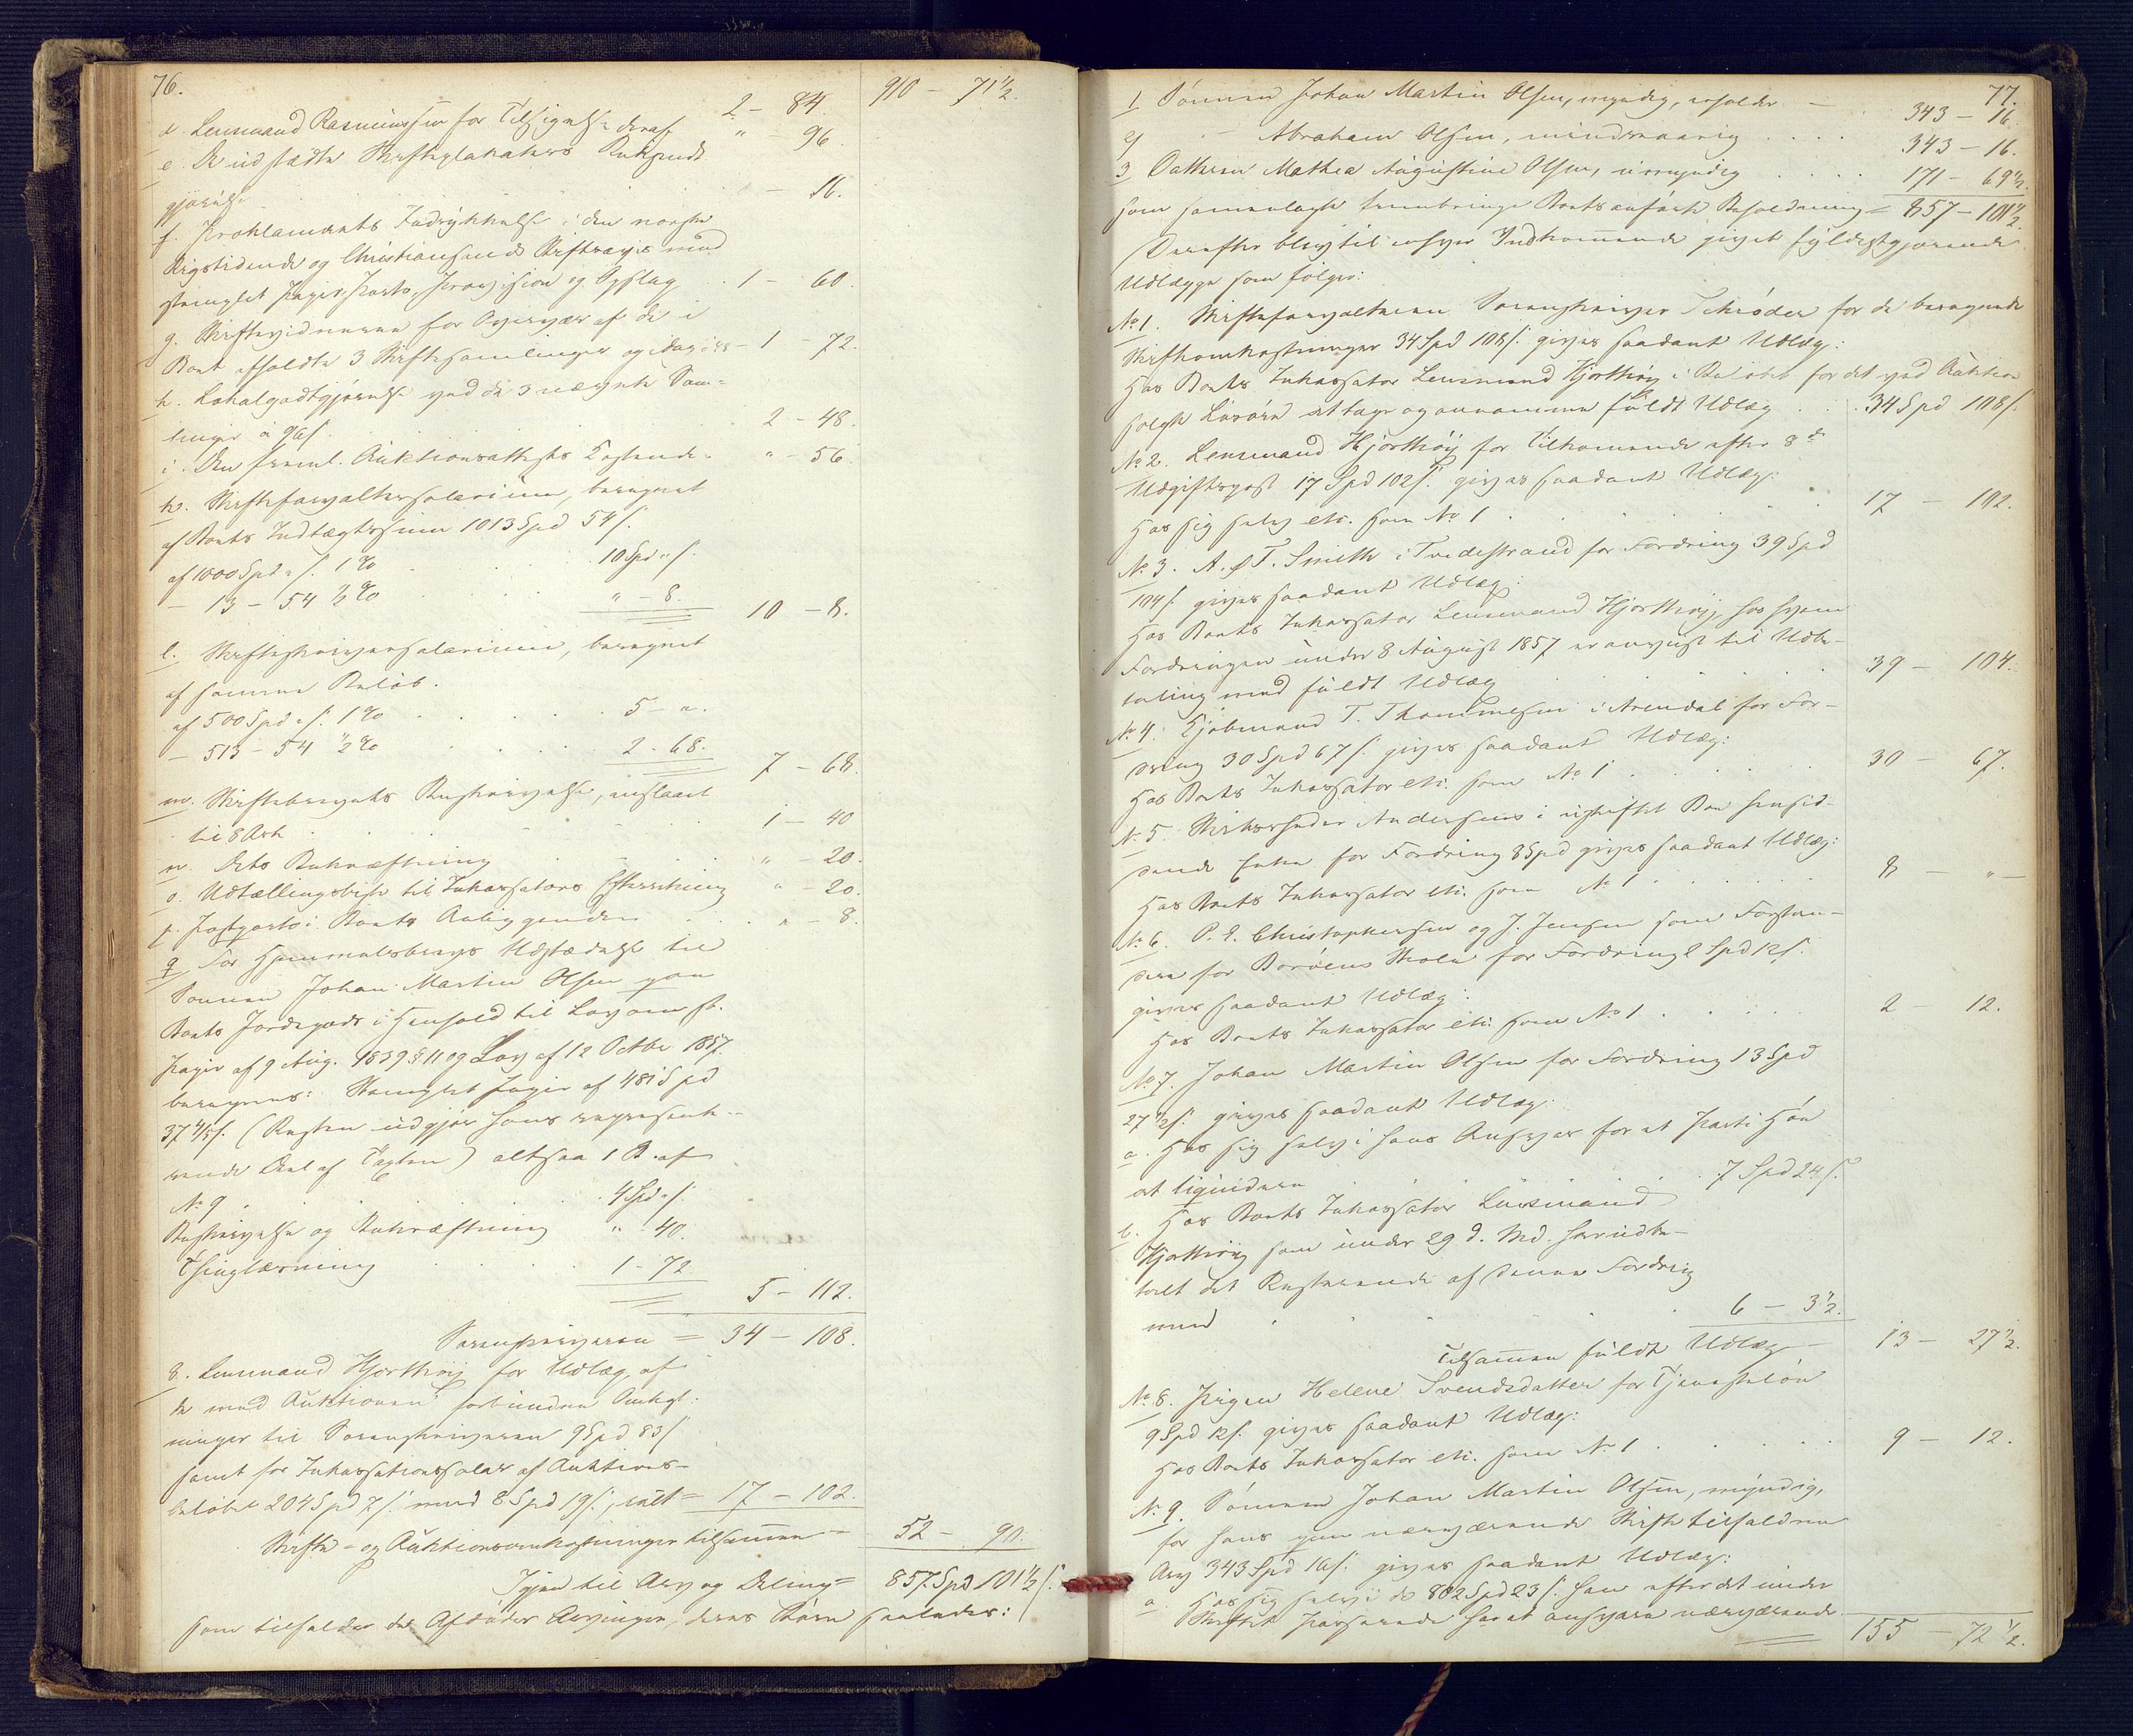 76.
910 – 71½.
d. Lensmand Rasmussen for Tilsigelse deraf 2 – 84.
e. De udstædte Skifteplakaters Bekjendt- " – 96.
gjørelse – 16.
f. Proklamaets Indrykkelse i den norske
Rigstidende og Christiansands Stiftsavis med
stemplet Papir, Porto, Provision og Opslag 1 – 60.
g. Skiftevidnerne for Overvær af de i
Boet afholdte 3 Skiftesamlinger og 1 – 72.
h. Lokalgodtgjørelse ved de 3 nævnte Sam-
linger à 96 s. 2 – 48.
i. Den freml. Auktionsattests Kostende " – 56.
k. Skifteforvaltersalarium, beregnet
af Boets Indtægtssum 1013 Spd 54 s.
af 1000 Spd " s. 1 % 10 Spd " s.
– 13 – 54 ½ % " – 8.
10 – 8.
l. Skifteskriversalarium, beregnet
af samme Beløb.
af 500 Spd " s. 1 % 5 – ".
– 513 – 54 ½ % 2 – 68.
7 – 68.
m. Skiftebrevets Beskrivelse, anslaaet
til 8 Ark 1 – 40
n. Dets Bekræftning " – 20.
o. Udtællingsliste til Inkassators Efterretning " – 20.
p. Postporto i Boets Anliggender " – 8.
q. For Hjemmelsbrevs Udstædelse til
Sønnen Johan Martin Olsen paa
Boets Jordegods i Henhold til Lov om st.
Papir af 9 Aug. 1839 § 11 og Lov af 12 Octbr 1857
beregnes: Stemplet Papir af 481 Spd
37 4/5 s. (Resten udgjør hans repræsente-
rende Deel af Taxten) altsaa 1 B. af
No 9 4 Spd " s.
Beskrivelse og Bekræftning " 40.
Thinglæsning 1 – 72
5 – 112.
Sorenskriveren = 34 – 108.
8. Lensmand Hjorthöy for Udlæg af
de med Auktionen forbundne Omkost-
ninger til Sorenskriveren 9 Spd 83 s
samt for Inkassationssalær af Auktions-
beløbet 204 Spd 7 s. med 8 Spd 19 s., ialt = 17 – 102.
Skifte- og Auktionsomkostninger tilsammen – 52 – 90.
Igjen til Arv og Deling = 857 Spd 101½ s.
som tilfalder den Afdødes Arvinger, deres Børn saaledes:
77.
1 Sønnen Johan Martin Olsen, myndig, erholder – 343 – 16.
2) Abraham Olsen, mindreaarig 343 – 16.
3 Datteren Mathea Augustine Olsen, umyndig 171 – 69½.
som sammenlagte frembringe Boets anførte Beholdning = 857 – 101½.
Derefter blev til enhver Indkommende givet fyldestgjørende
Udlægge som følger:
No 1. Skifteforvalteren Sorenskriver Schrøder for de beregnede
Skifteomkostninger 34 Spd 108 s. gives saadant Udlæg:
Hos Boets Inkassator Lensmand Hjorthöy i Beløbet for det ved Auktion
solgte Løsøre at tage og annamme fuldt Udlæg 34 Spd 108 s.
No 2. Lensmand Hjorthöy for Tilkommende efter 8de
Udgiftspost 17 Spd 102 s. gives saadant Udlæg:
Hos sig selv etc. som No 1 17 – 102.
No 3. A. & T. Smith i Tvedestrand for Fordring 39 Spd
104 s. gives saadant Udlæg:
Hos Boets Inkassator Lensmand Hjorthöy, hos hvem
Fordringen under 8 August 1857 er anvist til Udbe-
taling med fuldt Udlæg 39 – 104.
No 4. Kjøbmand T. Thommesen i Arendal for For-
dring 30 Spd 67 s. gives saadant Udlæg:
Hos Boets Inkassator etc. som No 1 30 – 67.
No 5. Andersens i uskiftet Bo hensid-
dende Enke for Fordring 8 Spd gives saadant Udlæg:
Hos Boets Inkassator etc. som No 1 8 – " –
No 6. P. E. Christophersen og J. Jensen som Forstan-
dere for Borøens Skole for Fordring 2 Spd 12 s.
gives saadant Udlæg:
Hos Boets Inkassator etc. som No 1 2 – 12.
No 7. Johan Martin Olsen for Fordring 13 Spd
27½ s. gives saadant Udlæg:
a. Hos sig selv i hans Ansvar for et Parti Høe
at liqvidere 7 Spd 24 s.
b. Hos Boets Inkassator Lensmand
Hjorthöy som under 29 d. Md. har udbe-
talt det Resterende af denne Fordring
med 6 – 3½.
Tilsammen fuldt Udlæg 13 – 27½.
No 8. Pigen Helene Svendsdatter for Tjenesteløn
9 Spd 12 s. gives saadant Udlæg:
Hos Boets Inkassator etc. som No 1 9 – 12.
No 9. Sønnen Johan Martin Olsen, myndig,
for hans paa nærværende Skifte tilfaldne
Arv 343 Spd 16 s. gives saadant Udlæg:
a. Hos sig selv i de 802 Spd 23 s. han efter det under
Skiftet Passerede har at ansvare nærværende
155 – 72½.